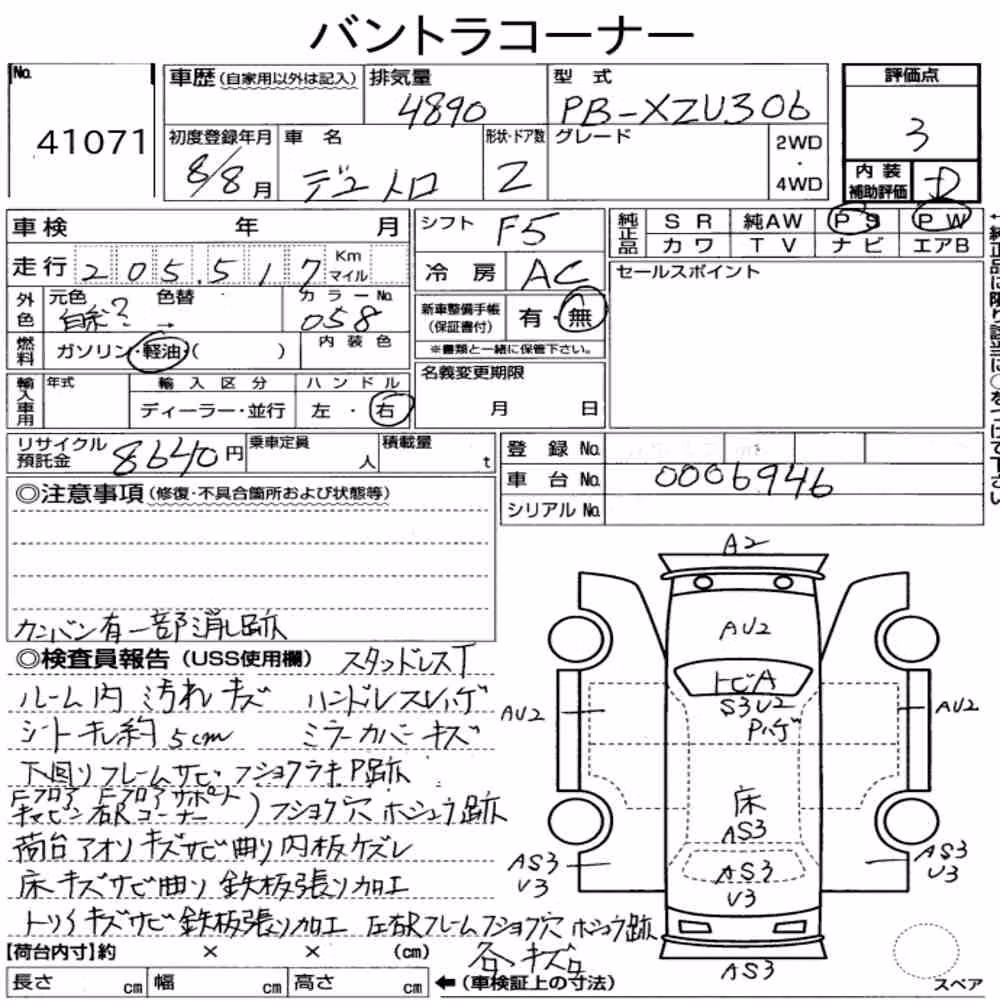 バントラコーナー
No.
41071
車歴(自家用以外は記入)
排気量
4890
型式
PB-XZU306
評価点
3
初度登録年月
8/8月
車名
デュトロ
形状・ドア数
2
グレード
2WD
・
4WD
内装
補助評価
D
車検 年 月
シフト
F5
純正品
SR 純AW PS PW
カワ TV ナビ エアB
走行
205,517
Km
マイル
冷房
AC
セールスポイント
外色
元色 色替 カラーNo.
自家? → 058
新車整備手帳
(保証書付)
有・無
燃料
ガソリン・軽油・( )
内装色
※書類と一緒に保管下さい。
輸入車用
年式
輸入区分
ハンドル
ディーラー・並行
左・右
名義変更期限
月 日
リサイクル
預託金
8640円
乗車定員
人
積載量
t
登録No.
車台No.
0006946
シリアルNo.
◎注意事項(修復・不具合箇所および状態等)
カンバン有 一部消し跡
◎検査員報告(USS使用欄) スタッドレスT
ルーム内 汚れキズ ハンドルスレハゲ
シートキレ約5cm ミラーカバーキズ
下回りフレームサビ・フショクラキP跡
Fフロア Fフロアサポート
キャビン左右Rコーナー
)フショク穴 ホシュウ跡
荷台アオリキズサビ曲り内板ケズレ
床キズサビ曲り 鉄板張り加工
トリイキズサビ鉄板張り加工 左右Rフレームフショク穴 ホシュウ跡
各キズ
A2
AU2
トビA
S3U2
Pハゲ
AU2
AU2
床
AS3
AS3
U3
AS3
U3
AS3
U3
AS3
【荷台内寸】約 × × (cm)
長さ cm 幅 cm 高さ cm
←(車検証上の寸法)
スペア